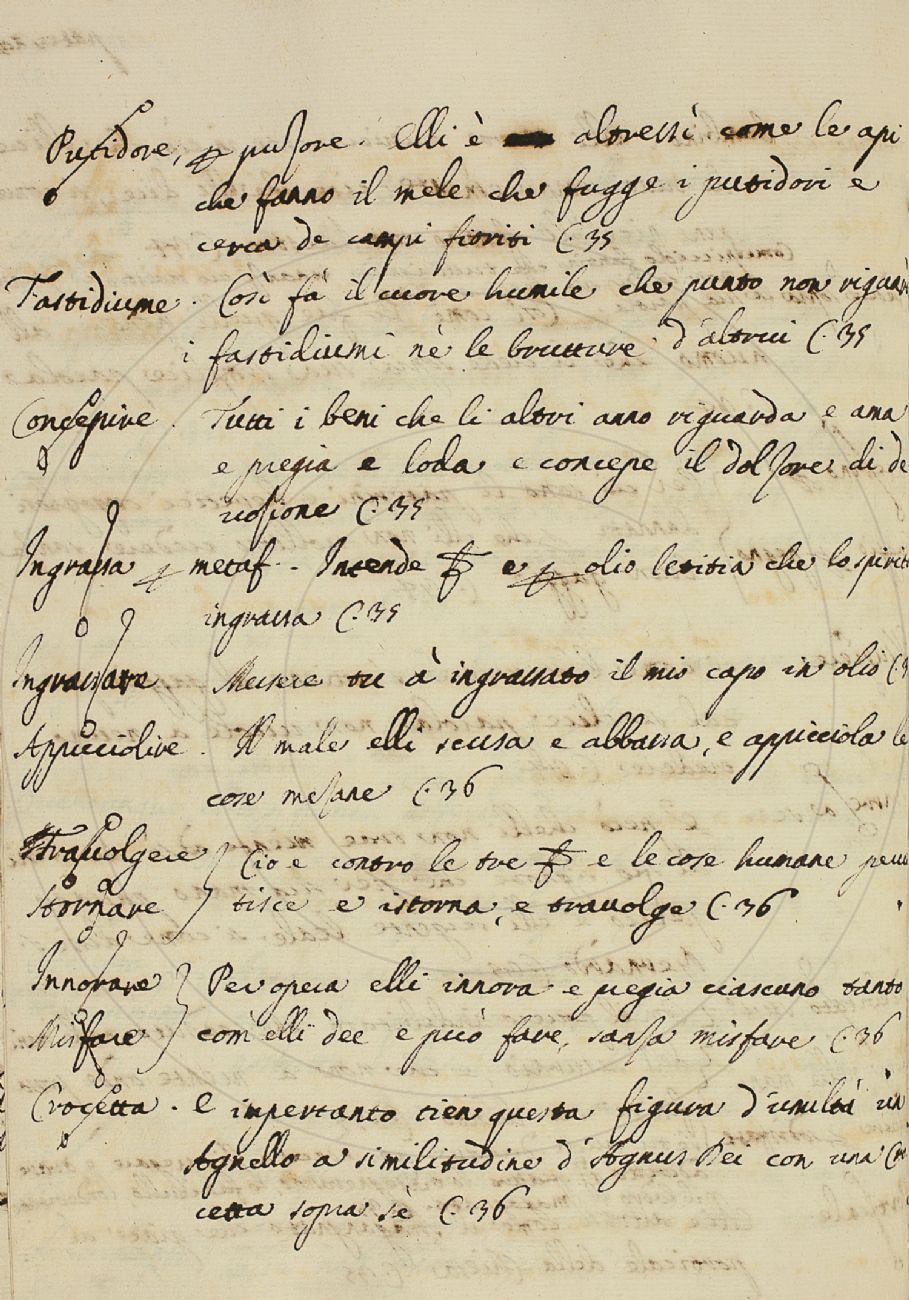 Putidore, p puzore. Elli è altressì come le api
che fanno il mele che fugge i putidori e
cerca de campi fioriti C. 35
Fastidiume. Così fà il cuore humile che punto non riguar
i fastidiumi nè le brutture d'altrui C. 35
Concepire. Tutti i beni che li altri anno riguarda e ama
e pregia e loda e concepe il dolzore di de
vozione C. 35
Ingrassa p metaf. Intende e p olio letitia che lo spirit
ingrassa C. 35
Ingrassare Messere tu à ingrassato il mio capo in olio C. 3
Appicciolire. Il male elli scusa e abbassa, e appicciola le
cose mezane C. 36
Travolgere Cio e contro le tre e le cose humane pervi
Stornare tisce e istorna, e travolge C. 36
Innorare Per opera elli innora e pregia ciascuno tanto
Misfare com elli dee e può fare, sanza misfare C. 36
Crocetta. E impertanto tien questa figura d'umiltà un
Agnello a similitudine d'Agnus Dei con una Cro
cetta sopra sè C. 36